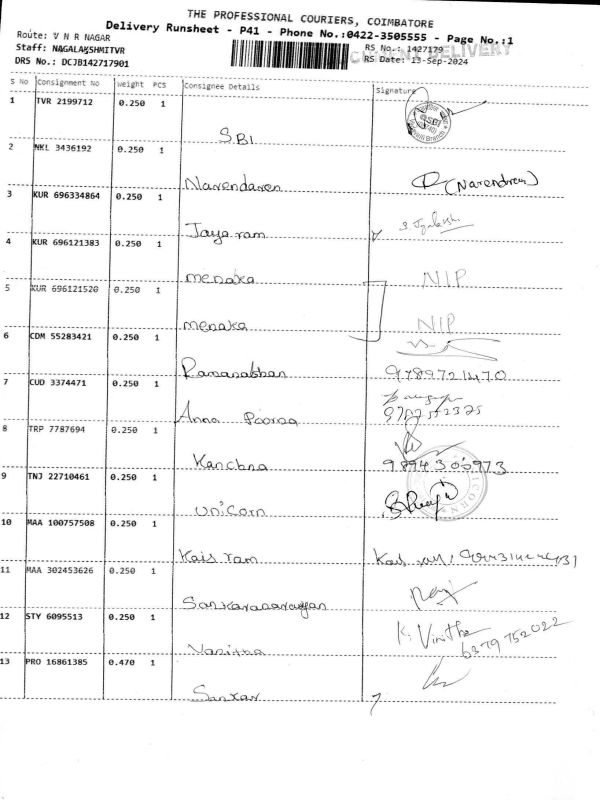 THE PROFESSIONAL COURIERS, COIMBATORE
Delivery Runsheet - P41 - Phone No.:0422-3505555 - Page No.:1
Route: V N R NAGAR
Staff: NAGALAKSHMITVR
DRS No.: DCJB142717901
RS No.: 1427179
RS Date: 13-Sep-2024
S No Consignment No Weight PCS Consignee Details Signature
1 TVR 2199712 0.250 1
SBI
2 NKL 3436192 0.250 1
Narendaren (Narendren)
3 KUR 696334864 0.250 1
Jaya ram
4 KUR 696121383 0.250 1
menaka NIP
5 KUR 696121520 0.250 1
menaka NIP
6 CDM 55283421 0.250 1
9789721470
7 CUD 3374471 0.250 1
Anna Poorna
8 TRP 7787694 0.250 1
Kanchna 9894300973
9 TNJ 22710461 0.250 1
Unicorn
10 MAA 100757508 0.250 1
Kais ram
11 MAA 302453626 0.250 1
12 STY 6095513 0.250 1
Vanitha K. Vinitha
6379752022
13 PRO 16861385 0.470 1
Sankar